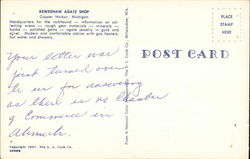 KEWEENAW AGATE SHOP
Copper Harbor, Michigan
Headquarters for the rockhound — information on col-
lecting areas — rough gem materials — minerals —
books — polished gems — agate jewelry in gold and
silver. Modern and comfortable cabins with gas heaters,
hot water and showers.
Your letter was
just turned over
to us for answering
as there is no Chamber
of Commerce in
POST CARD
PLACE
STAMP
HERE
Copyright 1951, The L. L. Cook Co.